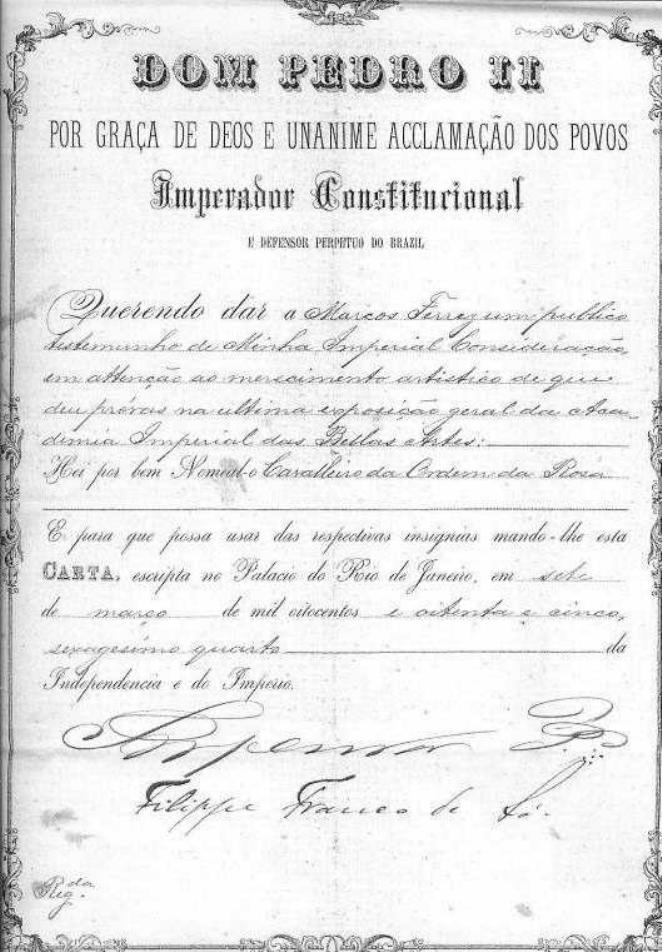 DOM PEDRO II
POR GRAÇA DE DEOS E UNANIME ACCLAMAÇÃO DOS POVOS
Imperador Constitucional
E DEFENSOR PERPETUO DO BRAZIL
Querendo dar a Marcos Ferrez um publico
testemunho de Minha Imperial Consideração,
em attenção ao merecimento artistico de que
deu próvas na ultima exposição geral da Aca-
demia Imperial das Bellas Artes:
Hei por bem Nomeal-o Cavalleiro da Ordem da Rosa
E para que possa usar das respectivas insignias mando-lhe esta
CARTA, escripta no Palacio do Rio de Janeiro, em sete
de março de mil oitocentos e oitenta e cinco,
sexagesimo quarto da
Independencia e do Imperio.
Imperador
Filippe Franco de Sá.
Reg.da